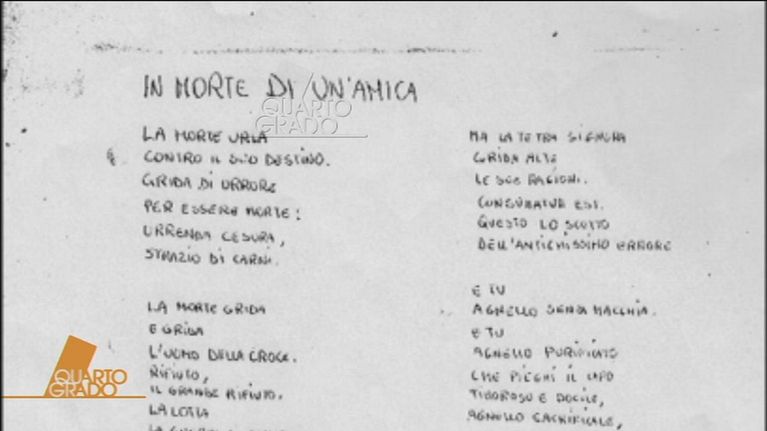 IN MORTE DI UN'AMICA
QUARTO
GRADO
LA MORTE URLA
CONTRO IL SUO DESTINO.
GRIDA DI ORRORE
PER ESSERE MORTE:
ORRENDA CESURA,
STRAZIO DI CARNI.
LA MORTE GRIDA
E GRIDA
L'UOMO DELLA CROCE.
RIFIUTO,
IL GRANDE RIFIUTO.
LA LOTTA
MA LA TETRA SIGNORA
GRIDA ALTE
LE SUE RAGIONI.
CONSUMATUR EST.
QUESTO LO SCOTTO
DELL'ANTICHISSIMO ERRORE
E TU
AGNELLO SENZA MACCHIA.
E TU
AGNELLO PURIFICATO
CHE PIEGHI IL CAPO
TIMOROSO E DOCILE,
AGNELLO SACRIFICALE,
QUARTO
GRADO